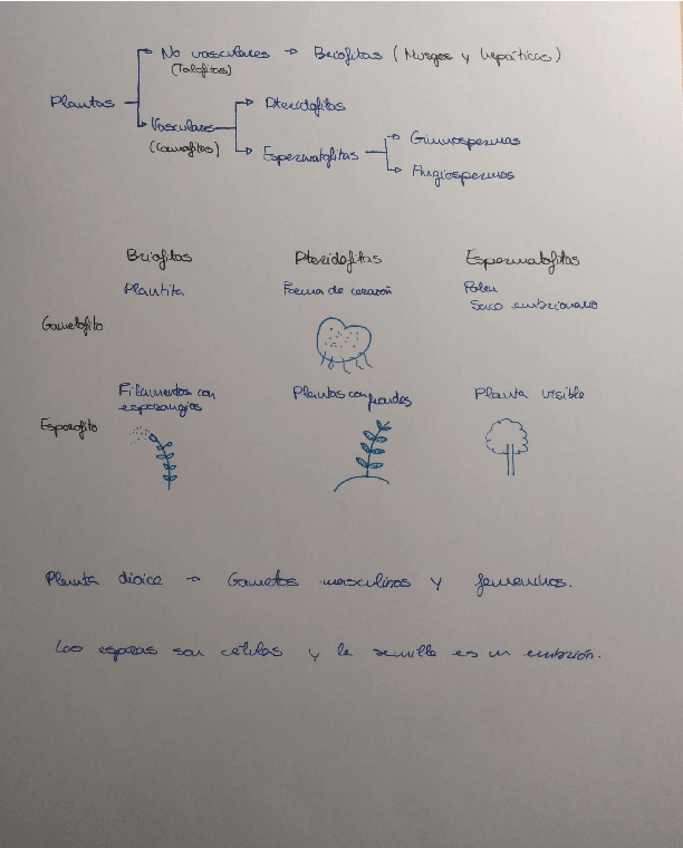 No vasculares → Briofitas (Musgos y hepáticas)
(Talofitas)
Plantas
Pteridofitas
Vasculares
(Cormofitas)
Espermatofitas
Gimnospermas
Angiospermas
Briofitas Pteridofitas Espermatofitas
Plantita Forma de corazón Polen
Saco embrionario
Gametofito
Filamentos con Plantas con frondes Planta visible
esporangios
Esporofito
Planta dioica → Gametos masculinos y femeninos.
Las esporas son células y la semilla es un embrión.